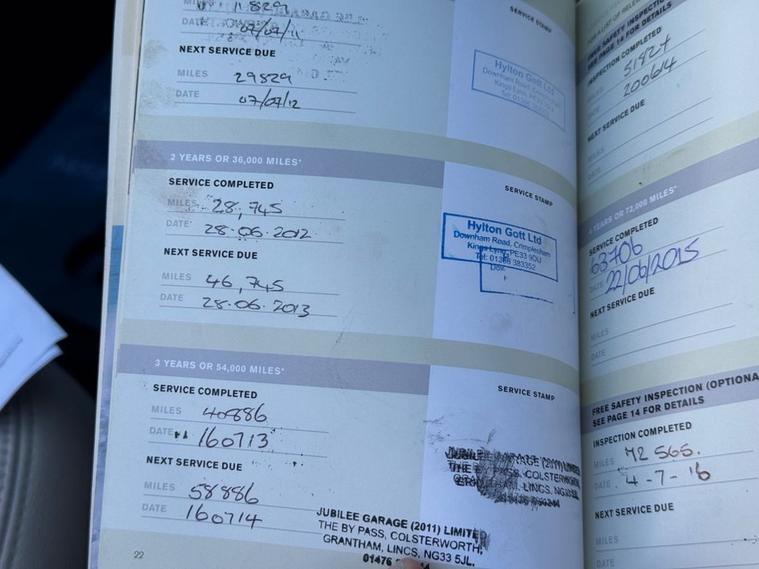 MILES 11829
DATE 07/07/11
NEXT SERVICE DUE
MILES 29829
DATE 07/07/12
SERVICE STAMP
Hylton Gott Ltd
2 YEARS OR 36,000 MILES*
SERVICE COMPLETED
MILES 28,745
DATE 28.06.2012
NEXT SERVICE DUE
MILES 46,745
DATE 28.06.2013
SERVICE STAMP
Hylton Gott Ltd
Downham Road, Crimplesham
Kings Lynn PE33 9DU
Tel: 01366 383352
3 YEARS OR 54,000 MILES*
SERVICE COMPLETED
MILES 40886
DATE 160713
NEXT SERVICE DUE
MILES 58886
DATE 160714
SERVICE STAMP
JUBILEE GARAGE (2011) LIMITED
THE BY PASS, COLSTERWORTH,
GRANTHAM, LINCS, NG33 5JL.
01476
22
FREE SAFETY INSPECTION
SEE PAGE 14 FOR DETAILS
INSPECTION COMPLETED
MILES 51827
DATE 200614
NEXT SERVICE DUE
MILES
DATE
4 YEARS OR 72,000 MILES*
SERVICE COMPLETED
63706
DATE 22/06/2015
NEXT SERVICE DUE
MILES
DATE
FREE SAFETY INSPECTION (OPTIONA
SEE PAGE 14 FOR DETAILS
INSPECTION COMPLETED
MILES 72 565.
DATE 4-7-16
NEXT SERVICE DUE
MILES
DATE